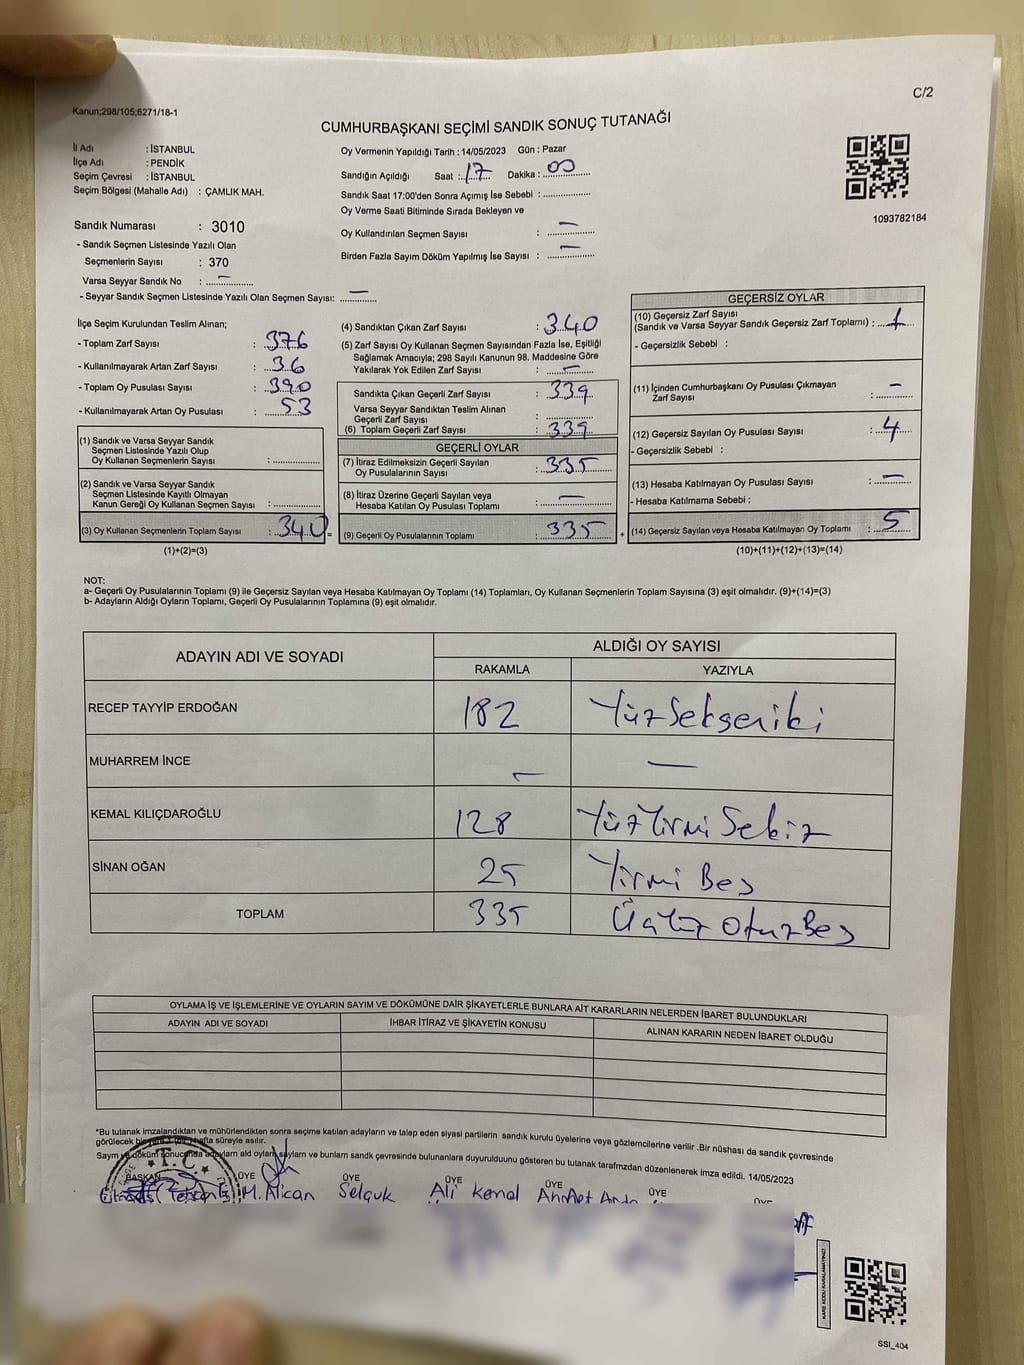 C/2
Kanun;298/105;6271/18-1
CUMHURBAŞKANI SEÇİMİ SANDIK SONUÇ TUTANAĞI
İl Adı : İSTANBUL
İlçe Adı : PENDİK
Seçim Çevresi : İSTANBUL
Seçim Bölgesi (Mahalle Adı) : ÇAMLIK MAH.
Oy Vermenin Yapıldığı Tarih : 14/05/2023 Gün : Pazar
Sandığın Açıldığı Saat :..17 Dakika :..00
Sandık Saat 17:00'den Sonra Açımış İse Sebebi :..............
Oy Verme Saati Bitiminde Sırada Bekleyen ve
Oy Kullandırılan Seçmen Sayısı : —
Birden Fazla Sayım Döküm Yapılmış İse Sayısı : —
1093782184
Sandık Numarası : 3010
- Sandık Seçmen Listesinde Yazılı Olan
Seçmenlerin Sayısı : 370
Varsa Seyyar Sandık No : —
- Seyyar Sandık Seçmen Listesinde Yazılı Olan Seçmen Sayısı: —
İlçe Seçim Kurulundan Teslim Alınan;
- Toplam Zarf Sayısı : 376
- Kullanılmayarak Artan Zarf Sayısı : 36
- Toplam Oy Pusulası Sayısı : 390
- Kullanılmayarak Artan Oy Pusulası : 53
(1) Sandık ve Varsa Seyyar Sandık
Seçmen Listesinde Yazılı Olup
Oy Kullanan Seçmenlerin Sayısı :..............
(2) Sandık ve Varsa Seyyar Sandık
Seçmen Listesinde Kayıtlı Olmayan
Kanun Gereği Oy Kullanan Seçmen Sayısı :..............
(3) Oy Kullanan Seçmenlerin Toplam Sayısı : 340 =
(1)+(2)=(3)
(4) Sandıktan Çıkan Zarf Sayısı : 340
(5) Zarf Sayısı Oy Kullanan Seçmen Sayısından Fazla İse, Eşitliği
Sağlamak Amacıyla; 298 Sayılı Kanunun 98. Maddesine Göre
Yakılarak Yok Edilen Zarf Sayısı : —
Sandıkta Çıkan Geçerli Zarf Sayısı : 339
Varsa Seyyar Sandıktan Teslim Alınan
Geçerli Zarf Sayısı :..............
(6) Toplam Geçerli Zarf Sayısı : 339
GEÇERLİ OYLAR
(7) İtiraz Edilmeksizin Geçerli Sayılan
Oy Pusulalarının Sayısı : 335
(8) İtiraz Üzerine Geçerli Sayılan veya
Hesaba Katılan Oy Pusulası Toplamı : —
(9) Geçerli Oy Pusulalarının Toplamı : 335 +
GEÇERSİZ OYLAR
(10) Geçersiz Zarf Sayısı
(Sandık ve Varsa Seyyar Sandık Geçersiz Zarf Toplamı) : 1
- Geçersizlik Sebebi :
(11) İçinden Cumhurbaşkanı Oy Pusulası Çıkmayan
Zarf Sayısı : —
(12) Geçersiz Sayılan Oy Pusulası Sayısı : 4
- Geçersizlik Sebebi :
(13) Hesaba Katılmayan Oy Pusulası Sayısı : —
- Hesaba Katılmama Sebebi :
(14) Geçersiz Sayılan veya Hesaba Katılmayan Oy Toplamı : 5
(10)+(11)+(12)+(13)=(14)
NOT:
a- Geçerli Oy Pusulalarının Toplamı (9) ile Geçersiz Sayılan veya Hesaba Katılmayan Oy Toplamı (14) Toplamları, Oy Kullanan Seçmenlerin Toplam Sayısına (3) eşit olmalıdır. (9)+(14)=(3)
b- Adayların Aldığı Oyların Toplamı, Geçerli Oy Pusulalarının Toplamına (9) eşit olmalıdır.
ADAYIN ADI VE SOYADI ALDIĞI OY SAYISI
RAKAMLA YAZIYLA
RECEP TAYYİP ERDOĞAN 182 Yüzsekseniki
MUHARREM İNCE — —
KEMAL KILIÇDAROĞLU 128 Yüz Yirmi Sekiz
SİNAN OĞAN 25 Yirmi Beş
TOPLAM 335 Üçyüz OtuzBeş
OYLAMA İŞ VE İŞLEMLERİNE VE OYLARIN SAYIM VE DÖKÜMÜNE DAİR ŞİKAYETLERLE BUNLARA AİT KARARLARIN NELERDEN İBARET BULUNDUKLARI
ADAYIN ADI VE SOYADI İHBAR İTİRAZ VE ŞİKAYETİN KONUSU ALINAN KARARIN NEDEN İBARET OLDUĞU
*Bu tutanak imzalandıktan ve mühürlendikten sonra seçime katılan adayların ve talep eden siyasi partilerin sandık kurulu üyelerine veya gözlemcilerine verilir .Bir nüshası da sandık çevresinde
görülecek bir yere hafta süreyle asılır.
Sayım ve döküm sonucunda adayların ald oyların sayları ve bunların sandık çevresinde bulunanlara duyurulduunu gösteren bu tutanak tarafmzdan düzenlenerek imza edildi. 14/05/2023
T.C.
BAŞKAN ÜYE ÜYE ÜYE ÜYE ÜYE ÜYE
M. Alican Selçuk Ali Kemal Ahmet
SSI_404